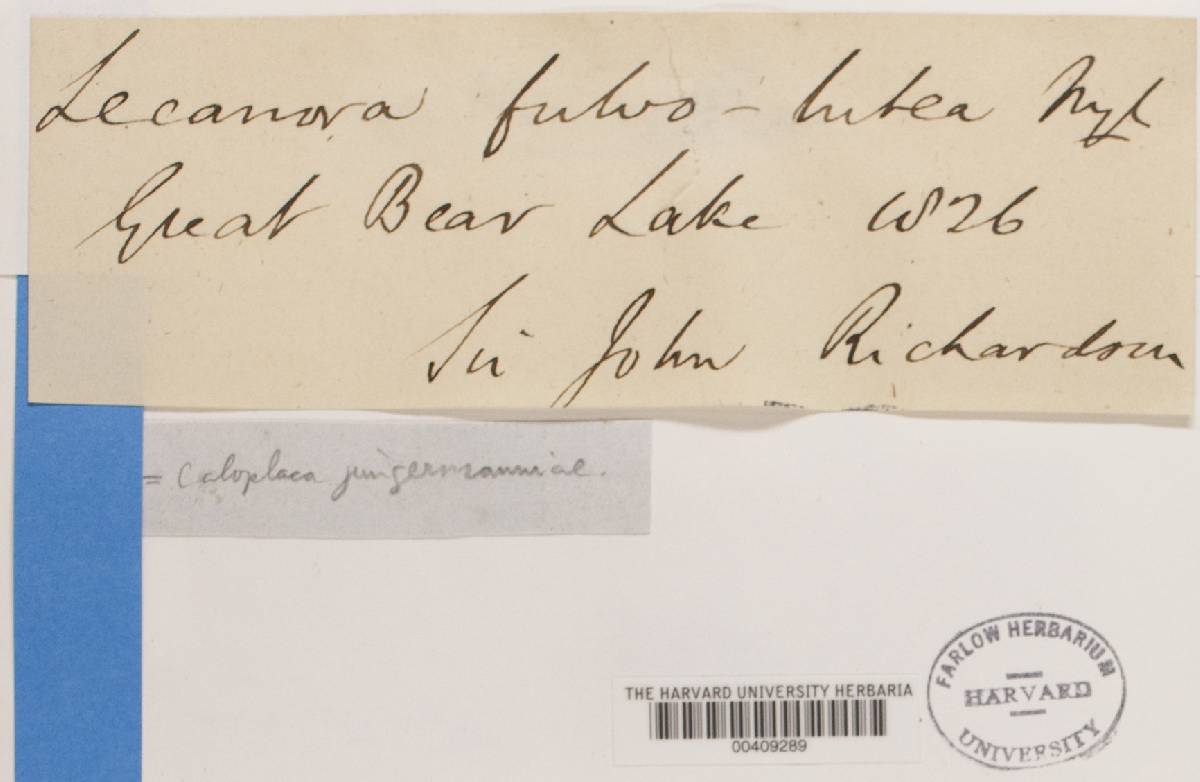 Lecanora fulvo-lutea Nyl
Great Bear Lake 1826
Sir John Richardson
= Caloplaca jungermanniae.
THE HARVARD UNIVERSITY HERBARIA
00409289
FARLOW HERBARIUM
HARVARD
UNIVERSITY